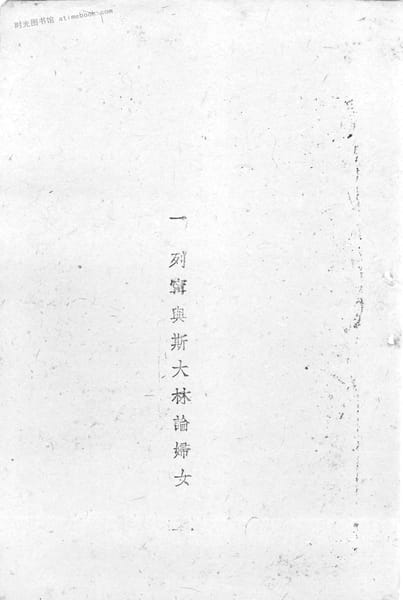 时光图书馆 atimebook.com
一 列甯與斯大林論婦女